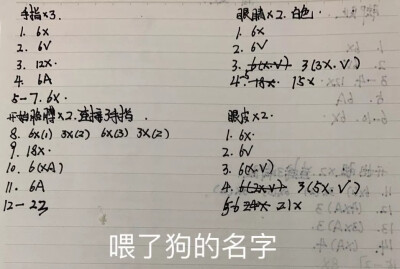 手指x3.
1. 6x
2. 6V
3. 12x.
4. 6A
5-7. 6x.
开始胳膊x2.连接3手指.
8. 6x(1) 3x(2) 6x(3) 3x(2)
9. 18x.
10. 6(xA)
11. 6A
12-23
眼睛x2.白色.
1. 6x
2. 6V
3. 6(x.V) 3(3x.V)
4. 18x. 15x
眼皮x2.
1. 6x.
2. 6V
3. 6(x.V)
4. 6(2x.V) 3(5x.V)
5-6 24x 21x
喂了狗的名字